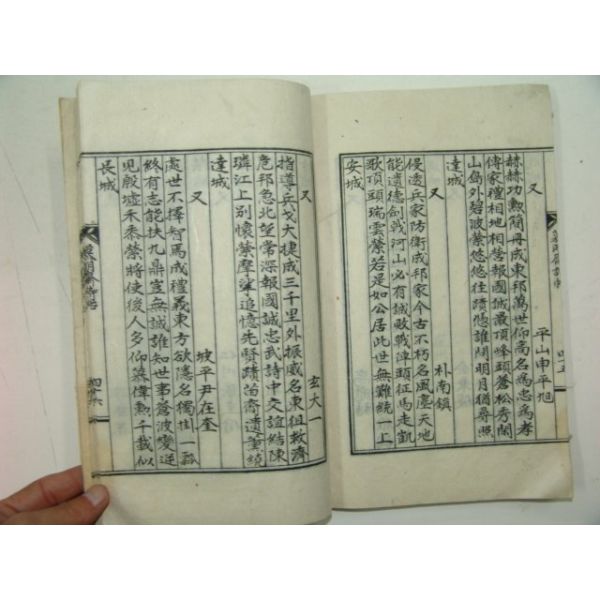 又
平山申平旭
赫赫功勳簡冊成東邦萬世仰高名爲忠爲孝
傳家禮相地相營報國城最頂峰頭蒼松秀閑
山島外碧波縈悠悠往蹟憑誰問明月猶尋照
達城
又
朴南鎭
俁逶兵家防衛成邦家今古不朽名風塵天地
能遺德劍戟河山必有誠敵戰陣頭征馬走凱
歌頂頭瑞雲縈若是如公居此世無難統一上
安城
又
玄大一
指導兵戈大捷成三千里外振威名東徂救濟
危邦急北望常深報國誠忠武詩中交誼結陳
璘江上別懷縈摩挲追憶先賢蹟苗裔遺業繞
達城
又
坡平尹在奎
處世不擇智馬成禮義東方欲隱名獨掛一瓢
終有志能扶九鼎豈無誠誰知世事蒼波變逆
見殷墟禾黍縈將使後人多仰慕偉勳千載似
長城